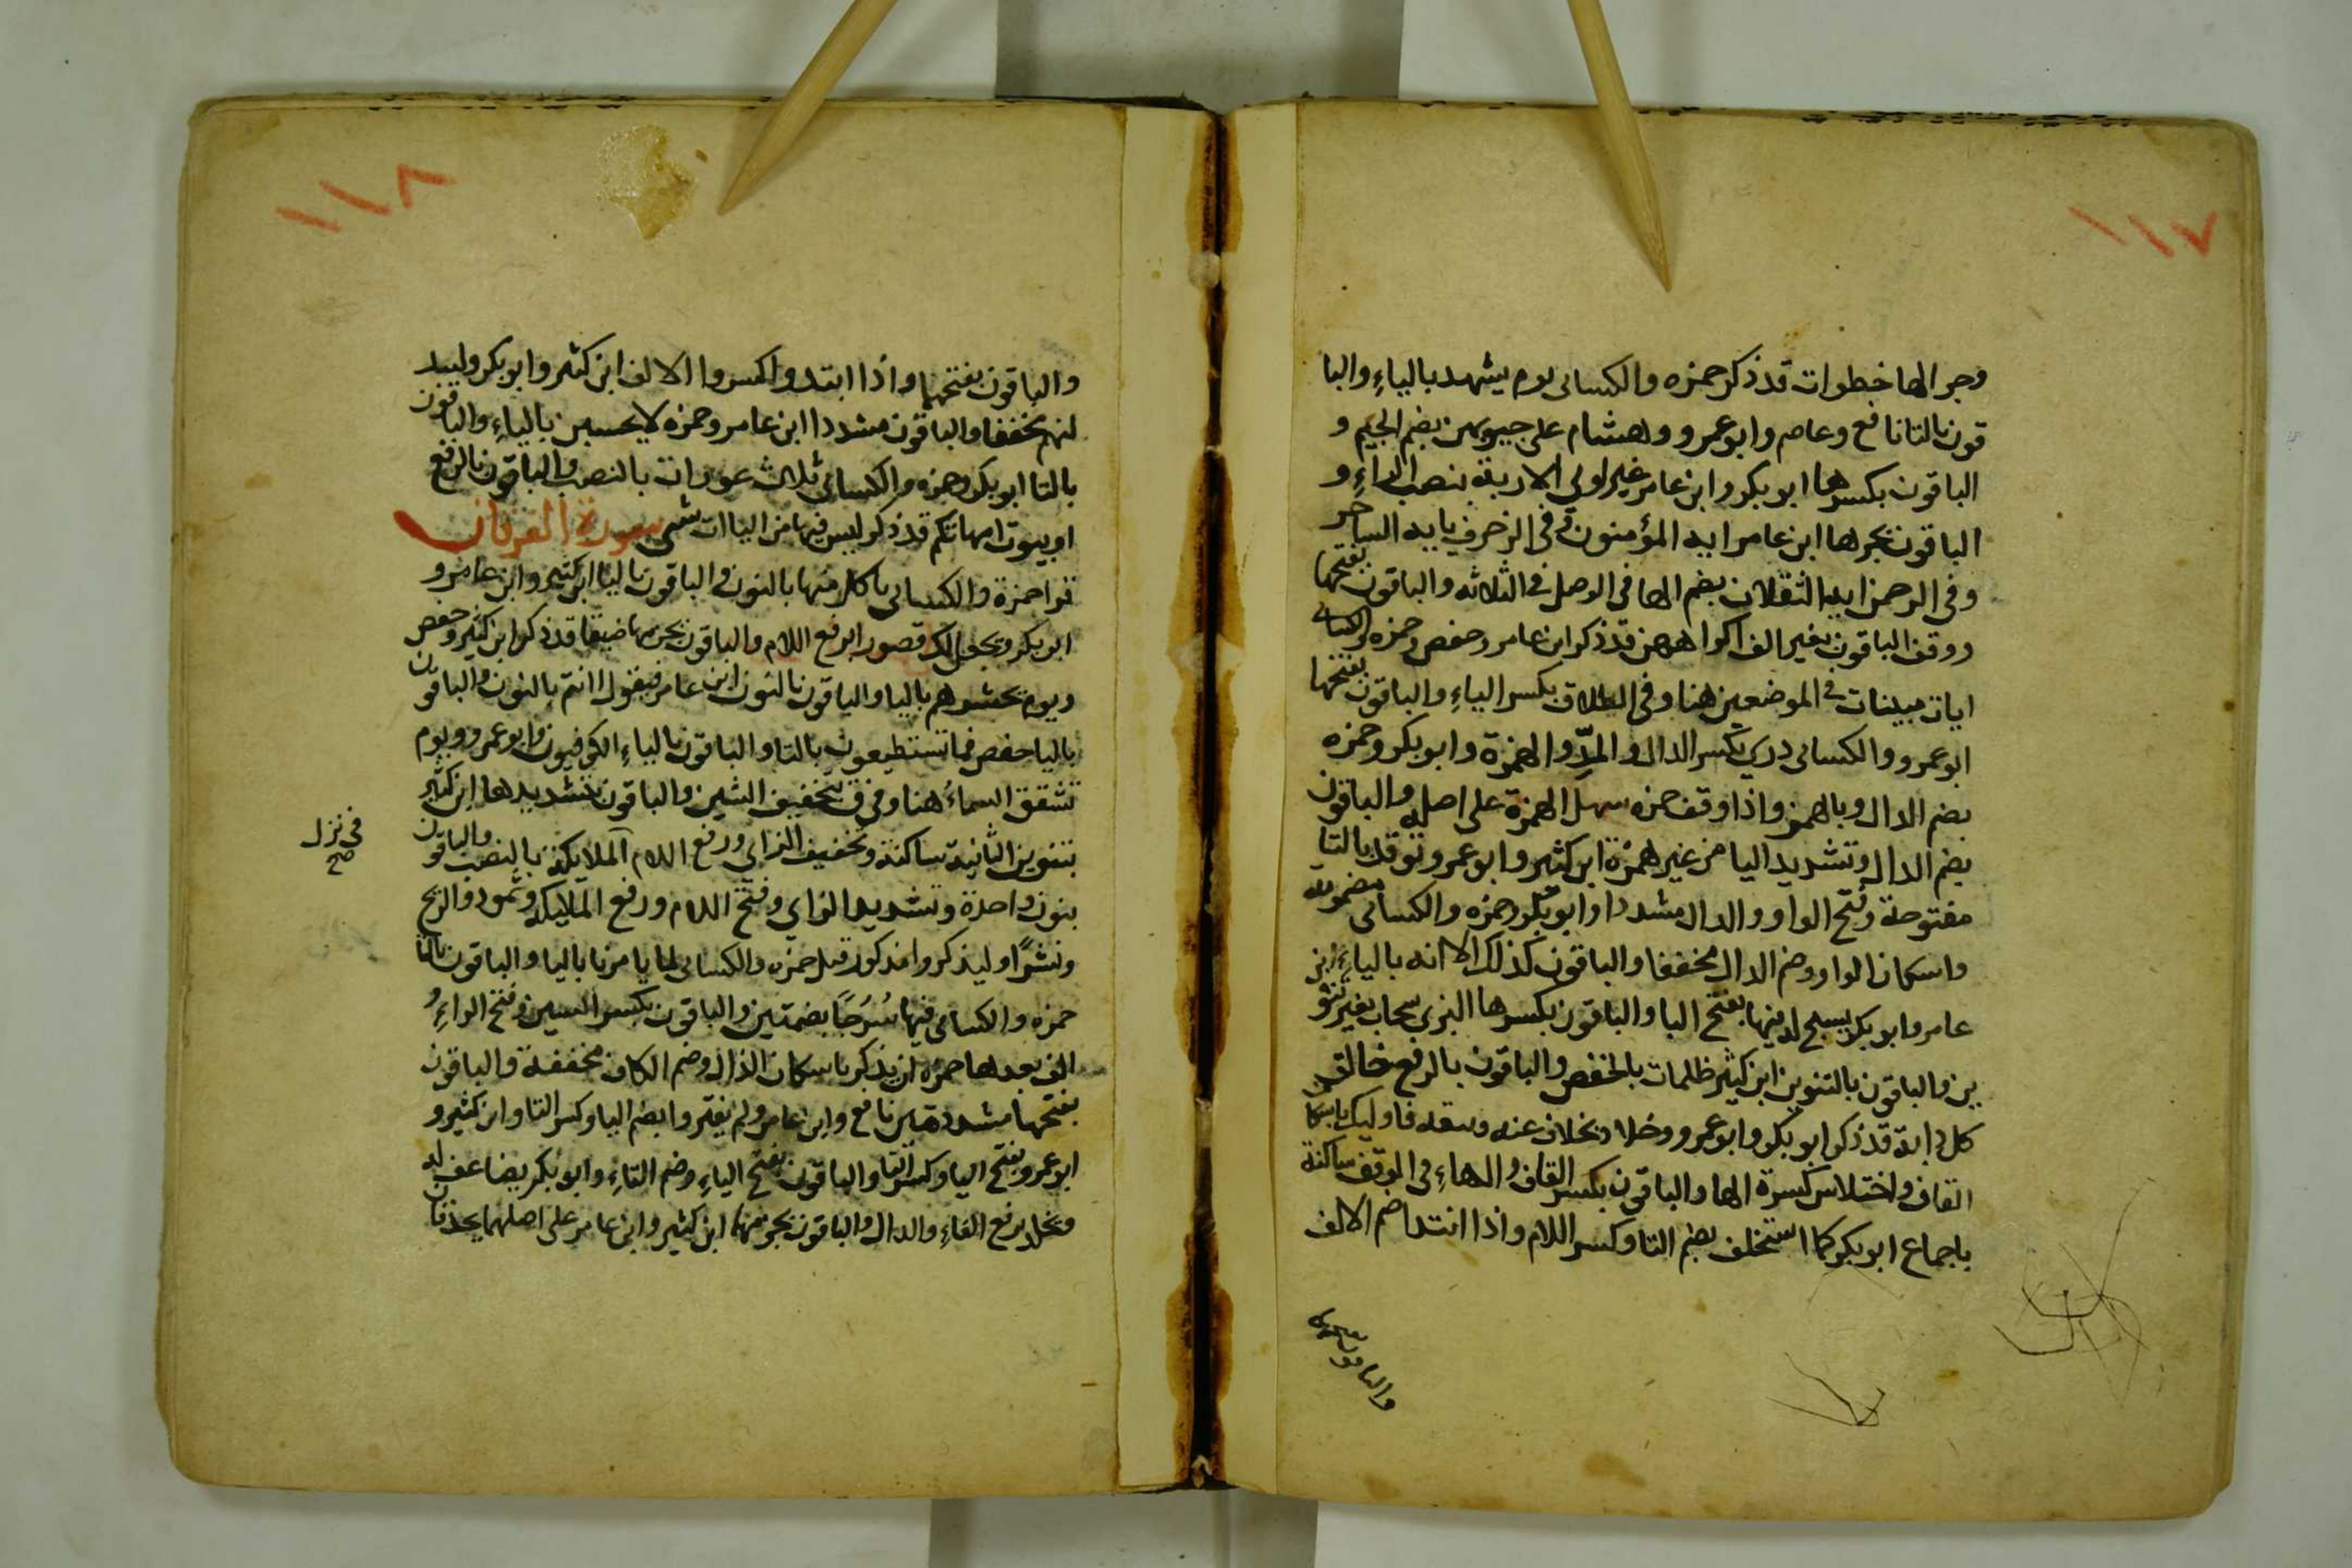 ١١٧
وجر الها خطوات قد ذكر حمزه والكسائى يوم يشهد بالياءِ والبا
قون بالتا نافع وعاصم وابو عمرو وهشام على جيوبهن بضم الجيم و
الباقون بكسرها ابو بكر وابن عامر غير اولي الاربة بنصب الراءِ و
الباقون بجرها ابن عامر ايه المؤمنون وفى الزخرف يايه الساحر
وفى الرحمن ايه الثقلان بضم الها فى الوصل فى الثلاثه والباقون بفتحها
ووقف الباقون بغير الف اكراههن قد ذكر ابن عامر وحفص وحمزه والكسائى
ايات مبينات فى الموضعين هنا وفى الطلاق بكسر الياءِ والباقون بفتحها
ابو عمرو والكسائى دري بكسر الدال والمدّ والهمزة وابو بكر وحمزه
بضم الدال وبالهمز واذا وقف حمزه سهل الهمزة على اصله والباقون
بضم الدال وتشديد اليا من غير همزة ابن كثير وابو عمرو توقد بالتا
مفتوحة وفتح الواو والدال مشددا وابو بكر وحمزه والكسائى مضمومة
واسكان الواو وضم الدال مخففا والباقون كذلك الا انه بالياءِ ابن
عامر وابو بكر يسبح له فيها بفتح البا والباقون بكسرها البزى سحاب بغير تنو
ين والباقون بالتنوين ابن كثير ظلمات بالخفض والباقون بالرفع خالق
كل دابة قد ذكر ابو بكر وابو عمرو وخلاد بخلاف عنه ويتقه فاوليك باسكا
القاف واختلاس كسرة الها والباقون بكسر القاف والهاءِ فى الوقف ساكنة
باجماع ابو بكر كما استخلف بضم التا وكسر اللام واذا ابتدا ضم الالف
والباقون بفتحهما
١١٨
والباقون بفتحهما واذا ابتدوا كسروا الالف ابن كثير وابو بكر وليبد
لنهم مخففا والباقون مشددا ابن عامر وحمزه لا يحسبن بالياءِ والباقون
بالتا ابو بكر وحمزه والكسائى ثلاث عورات بالنصب والباقون بالرفع
او بيوت امهاتكم قد ذكر ليس فيها من الياات شى سورة الفرقان
قرا حمزة والكسائى ناكل منها بالنون والباقون باليا ابن كثير وابن عامر و
ابو بكر ويجعل لك قصورا برفع اللام والباقون بجزمها ضيقا قد ذكر ابن كثير وحفص
ويوم يحشرهم باليا والباقون بالنون ابن عامر فنقول اانتم بالنون والباقون
باليا حفص فما تستطيعون بالتا والباقون بالياءِ الكوفيون وابو عمرو ويوم
تشقق السماءُ هنا وفى ق بتخفيف الشين والباقون بتشديدها ابن كثير
بتنوين الثانية ساكنة وتخفيف الزاى ورفع اللام الملايكة بالنصب والباقون
بنون واحدة وتشديد الزاي وفتح اللام ورفع الملايكه وثمود والريح
ونشرًا وليذكروا مذكور قبل حمزه والكسائى لما يامرنا باليا والباقون بالتا
حمزه والكسائى فيها سُرُجًا بضمتين والباقون بكسر السين وفتح الراءِ و
الف بعدها حمزه ان يذكر باسكان الذال وضم الكاف مخففة والباقون
بفتحها مشددتين نافع وابن عامر ولم يقتروا بضم اليا وكسر التا وابن كثير و
ابو عمرو بفتح اليا وكسر التا والباقون بفتح الياءِ وضم التاءِ وابو بكر يضاعف له
ويخلد برفع الفاءِ والدال والباقون بجزمهما ابن كثير وابن عامر على اصلهما يحذفان
فى نزل
صح